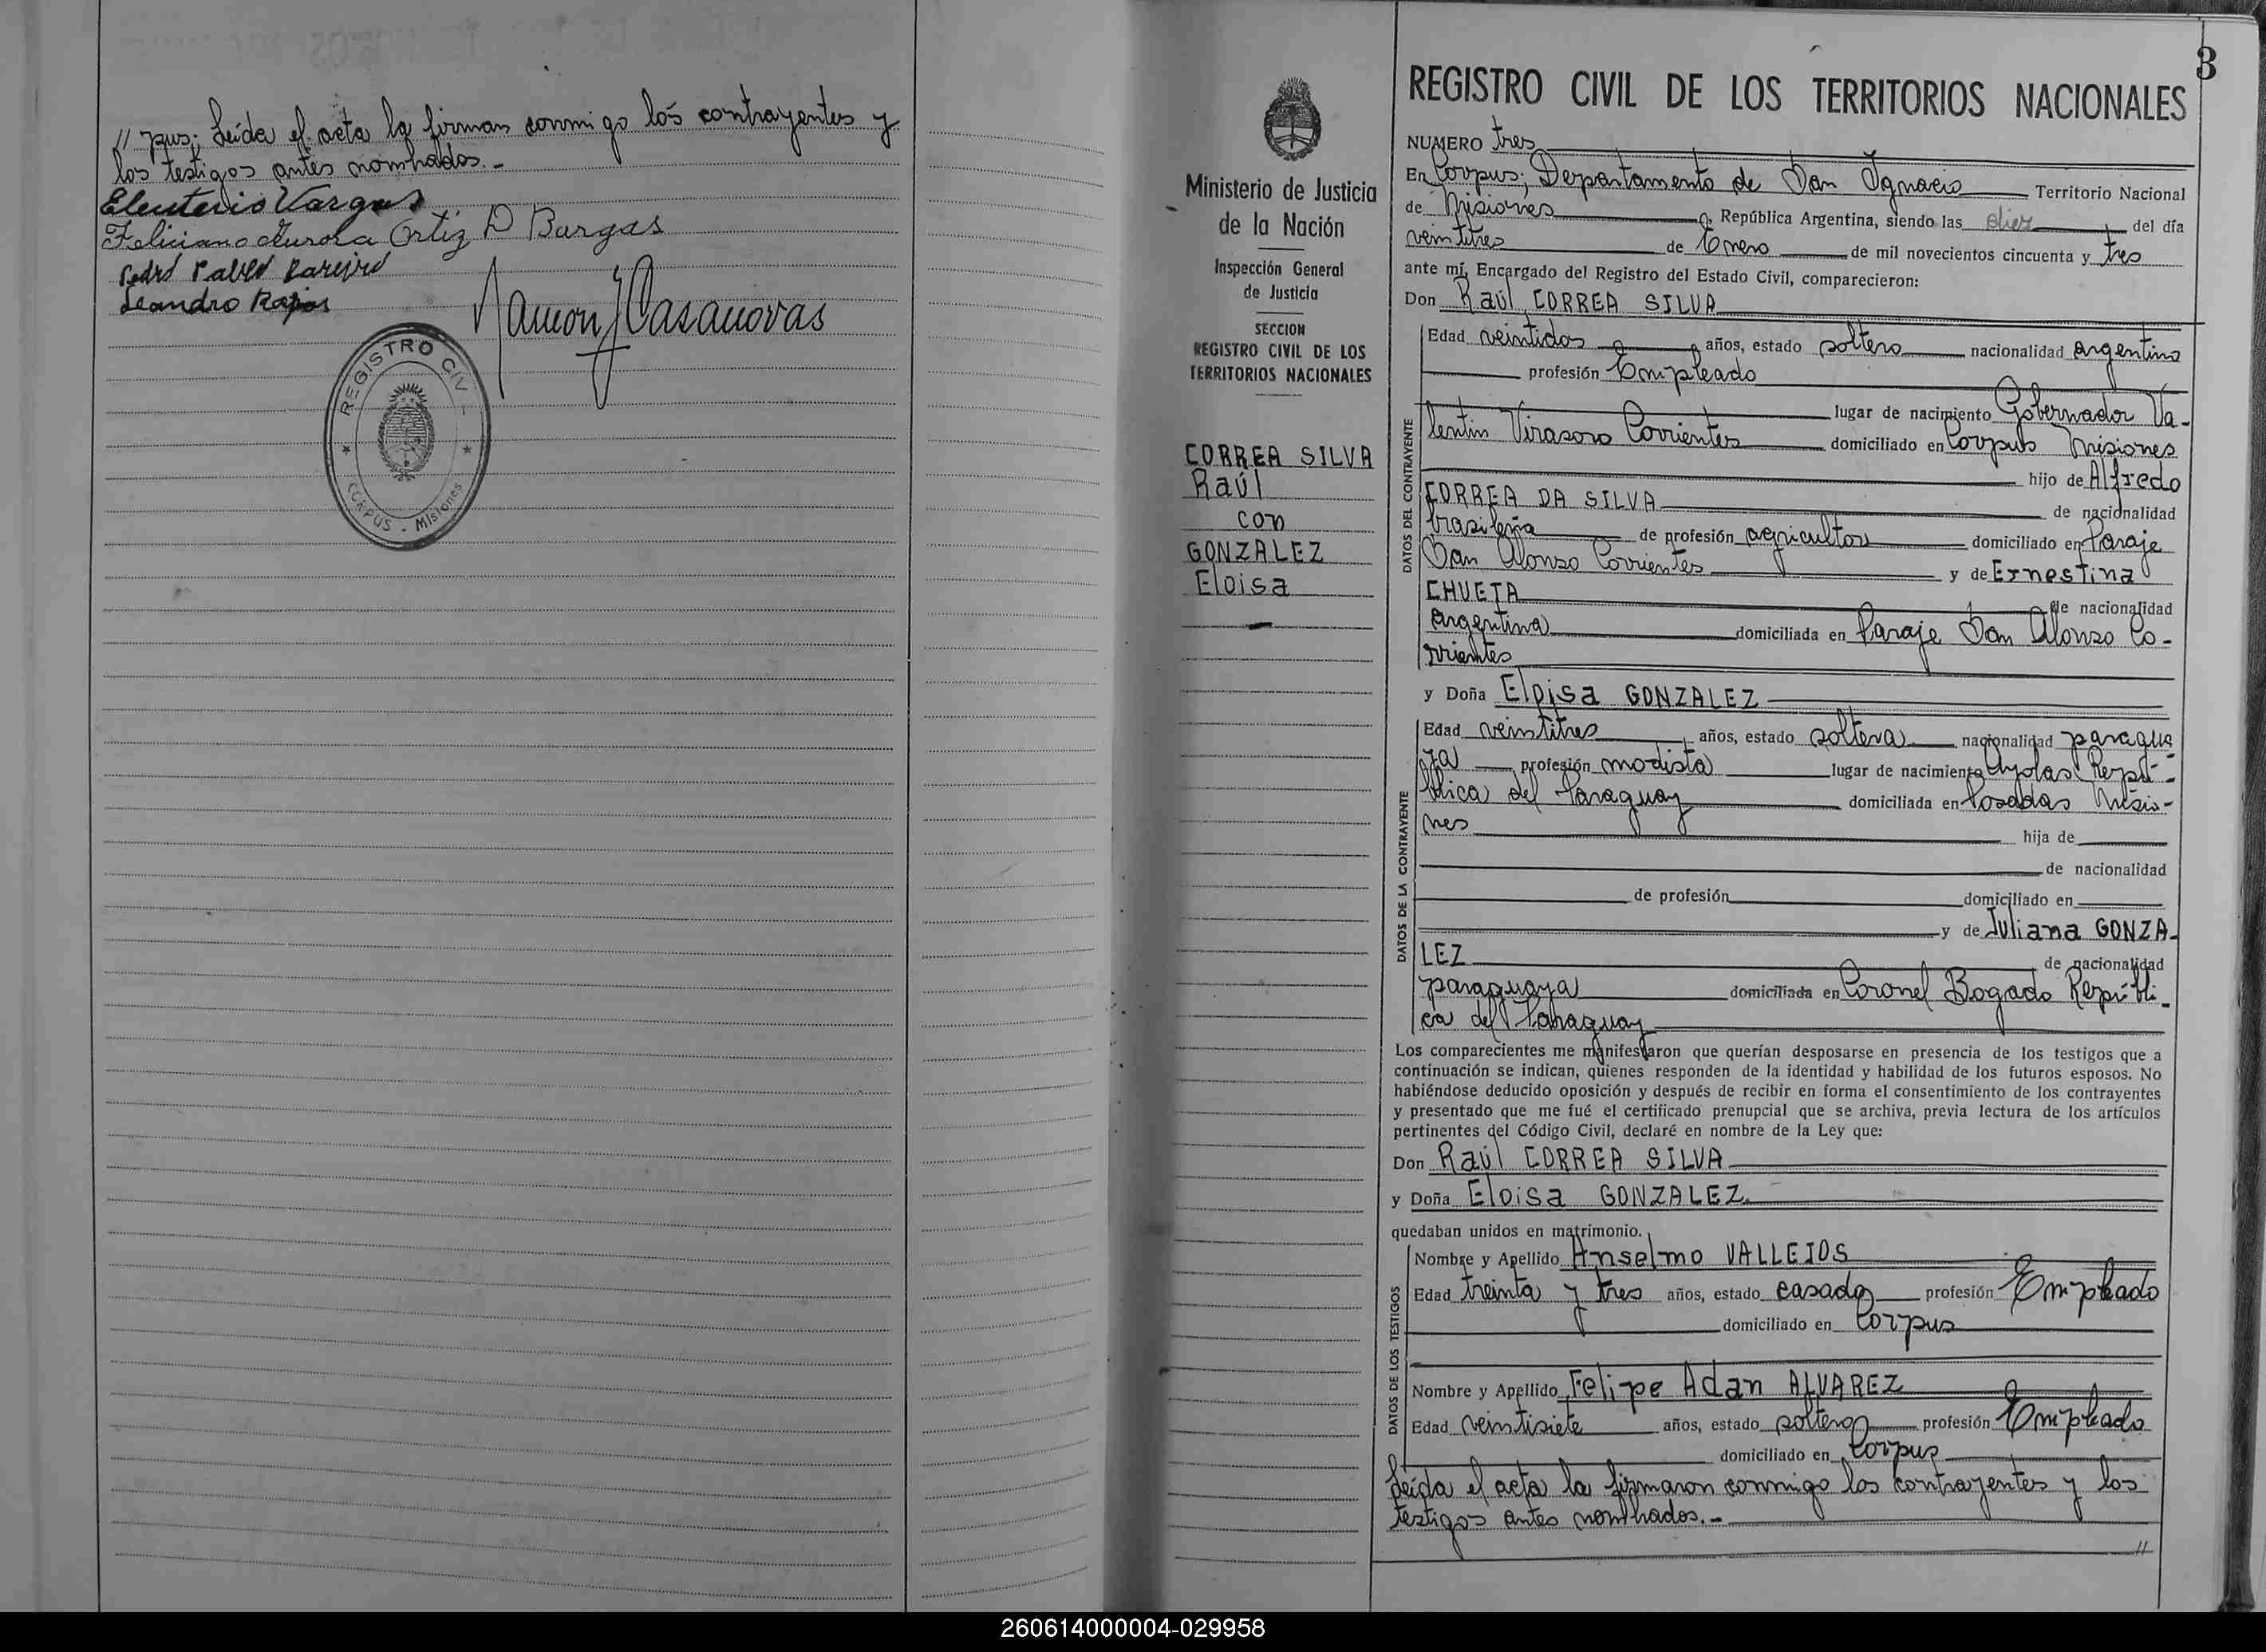 // pus; Leída el acta la firman conmigo los contrayentes y
los testigos antes nombrados.-
Eleuterio Vargas
Feliciana Aurora Ortiz D Bargas
Pedro Pablo Bareiro
Leandro Rojas
Ramon J Casanovas
REGISTRO CIV
CORPUS - Misiones
Ministerio de Justicia
de la Nación
Inspección General
de Justicia
SECCION
REGISTRO CIVIL DE LOS
TERRITORIOS NACIONALES
CORREA SILVA
Raúl
con
GONZALEZ
Eloisa
3
REGISTRO CIVIL DE LOS TERRITORIOS NACIONALES
NUMERO tres
En Corpus; Departamento de San Ignacio Territorio Nacional
de Misiones República Argentina, siendo las diez del día
veintitres de Enero de mil novecientos cincuenta y tres
ante mí, Encargado del Registro del Estado Civil, comparecieron:
Don Raúl CORREA SILVA
DATOS DEL CONTRAYENTE
Edad veintidos años, estado soltero nacionalidad argentina
profesión Empleado
lugar de nacimiento Gobernador Va-
lentin Virasoro Corrientes domiciliado en Corpus Misiones
hijo de Alfredo
CORREA DA SILVA de nacionalidad
brasileña de profesión agricultor domiciliado en Paraje
San Alonso Corrientes y de Ernestina
CHUETA de nacionalidad
argentina domiciliada en Paraje San Alonso Co-
rrientes
y Doña Eloisa GONZALEZ
DATOS DE LA CONTRAYENTE
Edad veintitres años, estado soltera nacionalidad paragua
ya profesión modista lugar de nacimiento Ayolas Repú-
blica del Paraguay domiciliada en Posadas Misio-
nes hija de
de nacionalidad
de profesión domiciliado en
y de Juliana GONZA-
LEZ de nacionalidad
paraguaya domiciliada en Coronel Bogado Repúbli-
ca del Paraguay
Los comparecientes me manifestaron que querían desposarse en presencia de los testigos que a
continuación se indican, quienes responden de la identidad y habilidad de los futuros esposos. No
habiéndose deducido oposición y después de recibir en forma el consentimiento de los contrayentes
y presentado que me fué el certificado prenupcial que se archiva, previa lectura de los artículos
pertinentes del Código Civil, declaré en nombre de la Ley que:
Don Raúl CORREA SILVA
y Doña Eloisa GONZALEZ.
quedaban unidos en matrimonio.
DATOS DE LOS TESTIGOS
Nombre y Apellido Anselmo VALLEJOS
Edad treinta y tres años, estado casado profesión Empleado
domiciliado en Corpus
Nombre y Apellido Felipe Adan ALVAREZ
Edad veintisiete años, estado soltero profesión Empleado
domiciliado en Corpus
Leída el acta la firmaron conmigo los contrayentes y los
testigos antes nombrados.-
//
260614000004-029958